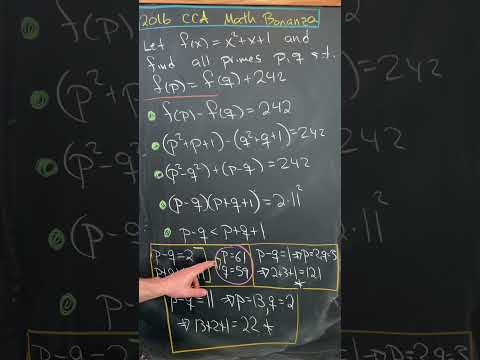 2016 CCA Math Bonanza
Let f(x)=x²+x+1 and
find all primes p,q s.t.
f(p)=f(q)+242
f(p)-f(q)=242
(p²+p+1)-(q²+q+1)=242
(p²-q²)+(p-q)=242
(p-q)(p+q+1)=2·11²
p-q<p+q+1
p-q=2
p=61
q=59
p-q=1⇒p=2,q=3
⇒2+3+1=121
p-q=11 ⇒p=13,q=2
⇒13+2+1=22
(p²+p
)=242
(p²-q
=242
(p-q
11²
p-